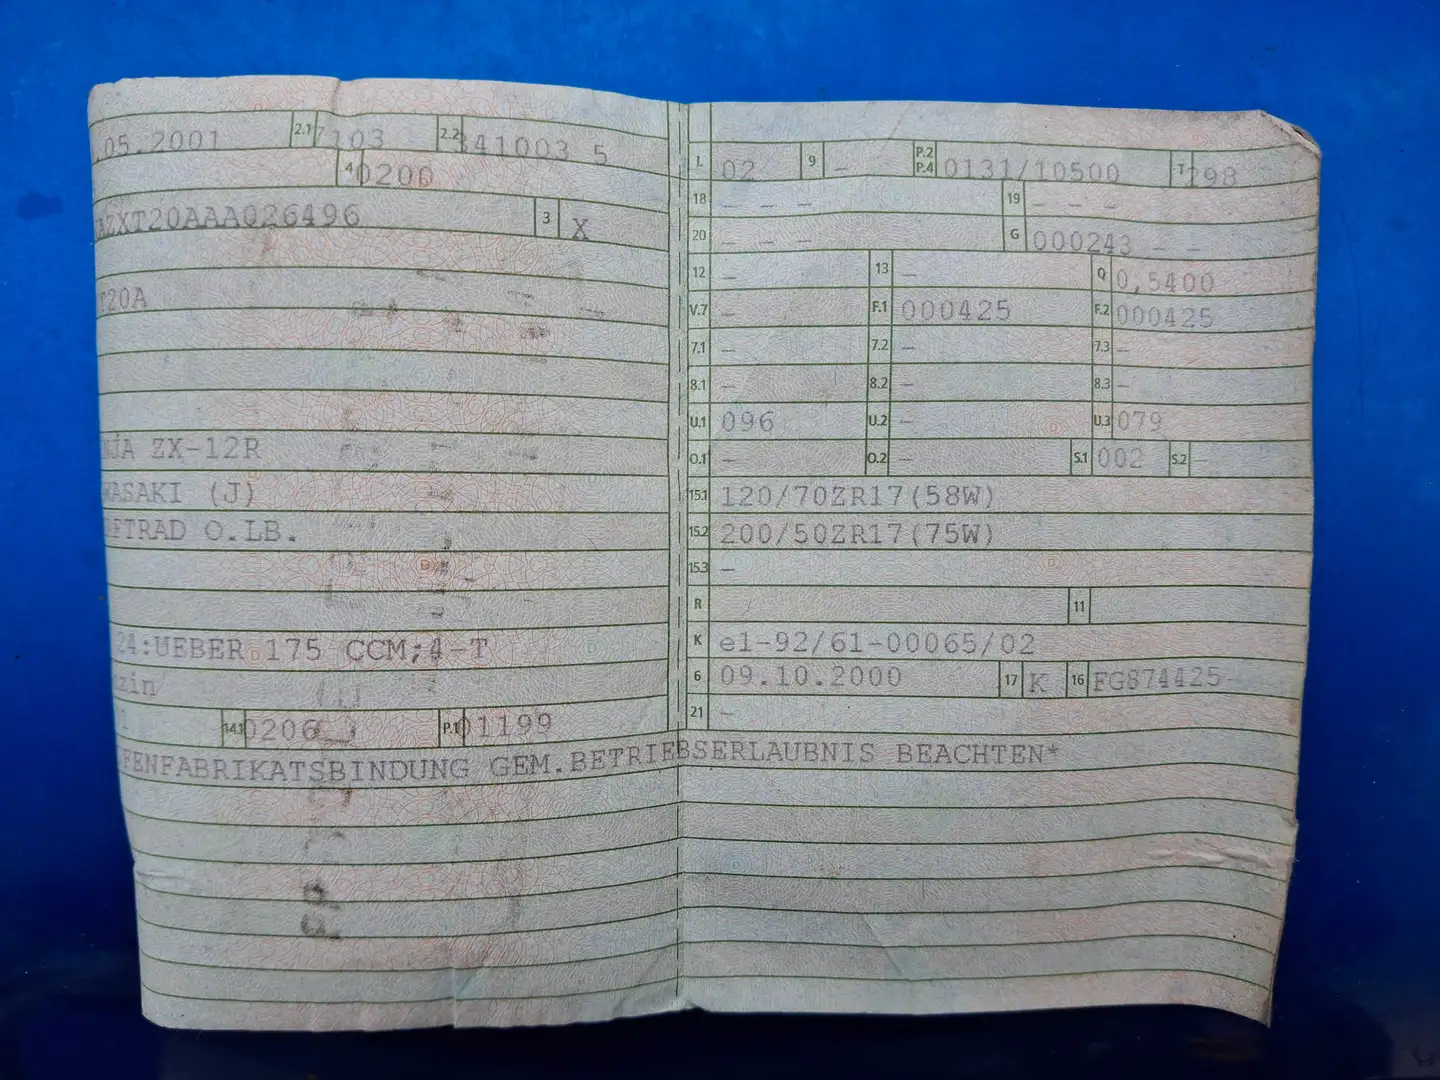 .05.2001 2.1 7103 2.2 341003 5
4 0200
AZXT20AAA026496 3 X
T20A
NJA ZX-12R
WASAKI (J)
FTRAD O.LB.
24:UEBER 175 CCM;4-T
zin
14.1 0206 P.1 01199
FENFABRIKATSBINDUNG GEM.BETRIEBSERLAUBNIS BEACHTEN*
L 02 9 – P.2 P.4 0131/10500 T 298
18 – – – 19 – – –
20 – – – G 000243 – –
12 – 13 – Q 0,5400
V.7 – F.1 000425 F.2 000425
7.1 – 7.2 – 7.3 –
8.1 – 8.2 – 8.3 –
U.1 096 U.2 – U.3 079
O.1 – O.2 – S.1 002 S.2 –
15.1 120/70ZR17(58W)
15.2 200/50ZR17(75W)
15.3 –
R 11
K e1-92/61-00065/02
6 09.10.2000 17 K 16 FG874425
21 –